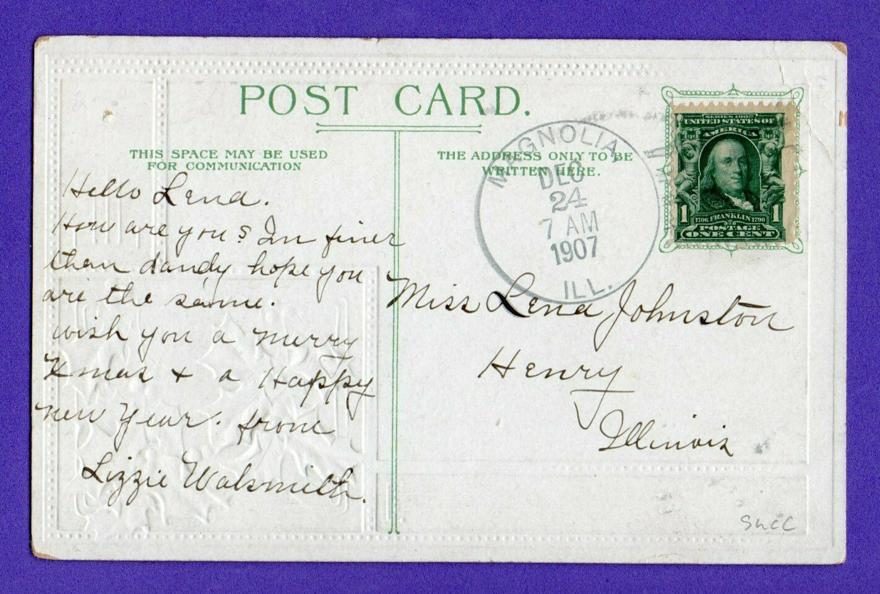 POST CARD.
THIS SPACE MAY BE USED
FOR COMMUNICATION
THE ADDRESS ONLY TO BE
WRITTEN HERE.
MAGNOLIA,
DEC
24
7 AM
1907
ILL.
SERIES 1902
UNITED STATES OF
AMERICA
1 1706 FRANKLIN 1790 1
POSTAGE
ONE CENT
Hello Lena.
How are you? Im finer
than dandy hope you
are the same.
wish you a merry
Xmas + a Happy
new Year. from
Lizzie Walsmith.
Miss Lena Johnston
Henry
Illinois